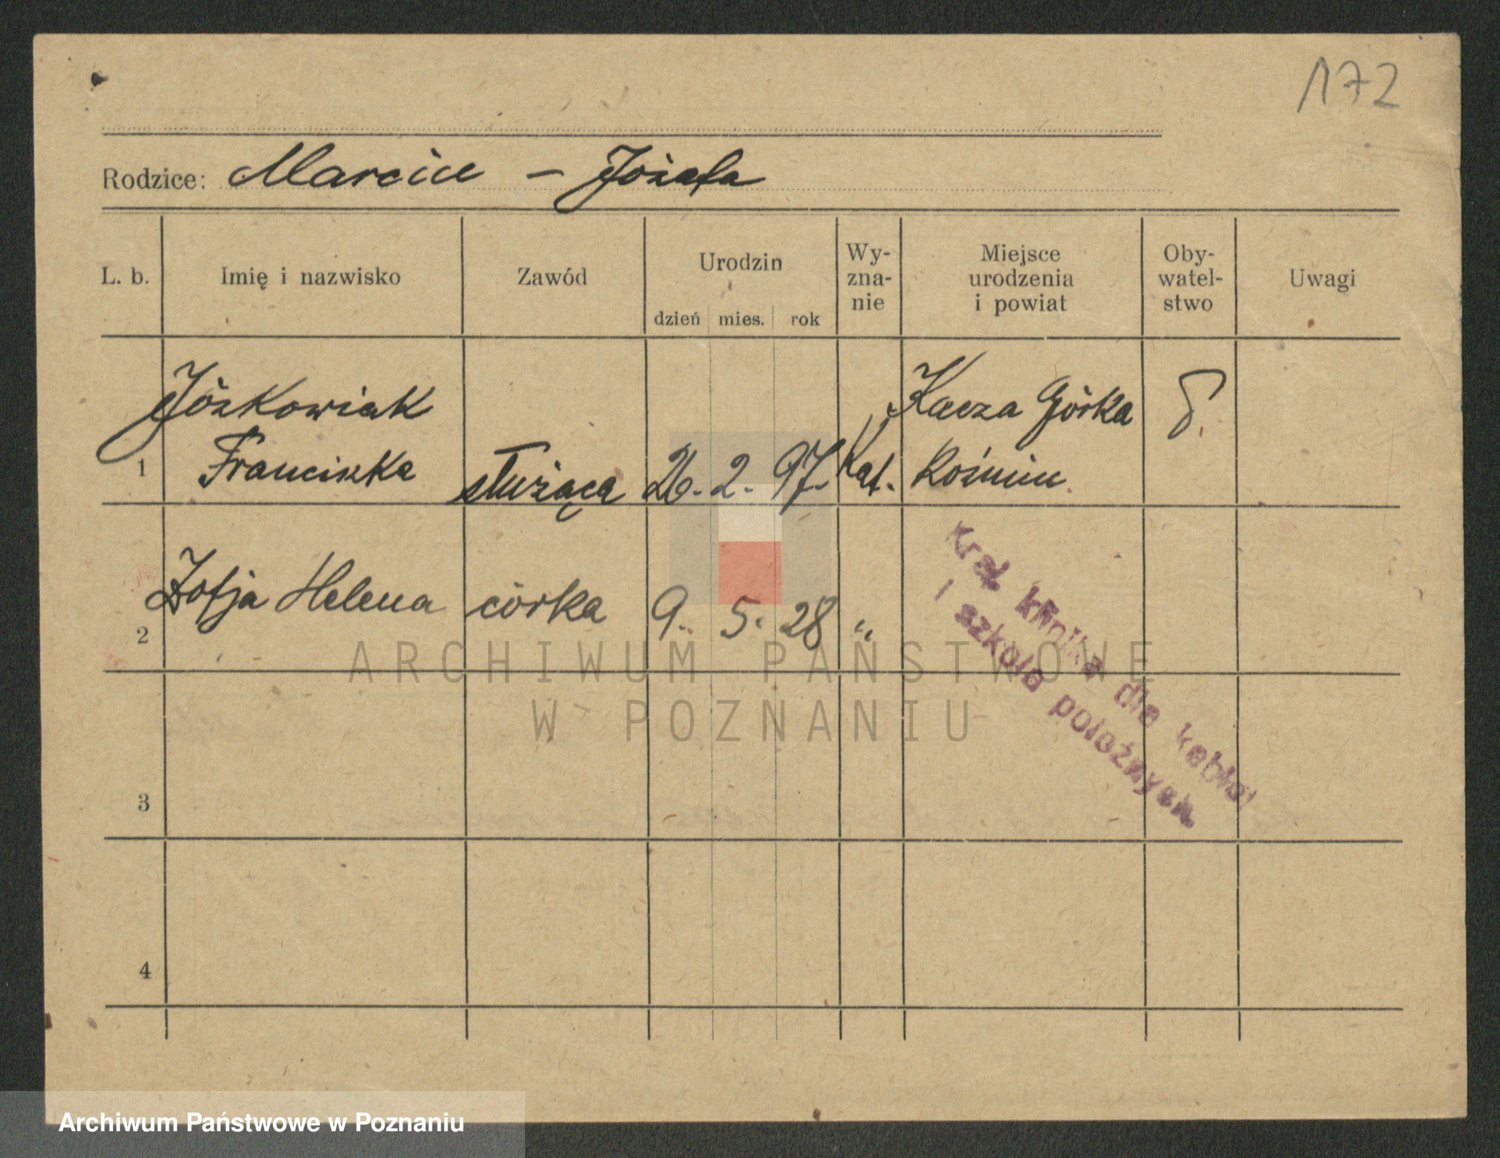 172
Rodzice: Marcin – Józefa
L. b. Imię i nazwisko Zawód Urodzin dzień mies. rok Wy-zna-nie Miejsce urodzenia i powiat Oby-watel-stwo Uwagi
Józkowiak Kacza Górka
1 Franciszka służąca 26. 2. 97. Kat. Koźmin
Zofja Helena córka 9. 5. 28 „
2
Kraj. klinika dla kobiet
i szkoła położnych.
3
4
ARCHIWUM PAŃSTWOWE
W POZNANIU
Archiwum Państwowe w Poznaniu